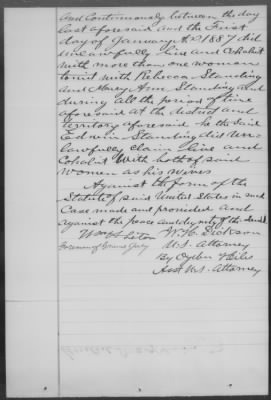 and Continuously between the day
last aforesaid and the First
day of January A.D. 1887 did
unlawfully live and Cohabit
with more than one woman
towit with Rebecca Standing
and Mary Ann Standing and
during all the period of time
aforesaid at the district and
Territory aforesaid he the said
Edwin Standing did un-
lawfully claim live and
Cohabit With both of said
women as his wives
Against the form of the
Statute of said United States in such
Case made and provided and
against the peace and dignity of the
Foreman of Grand Jury
W. H. Dickson
U.S. Attorney
By Ogden Hiles
Asst U.S. Attorney